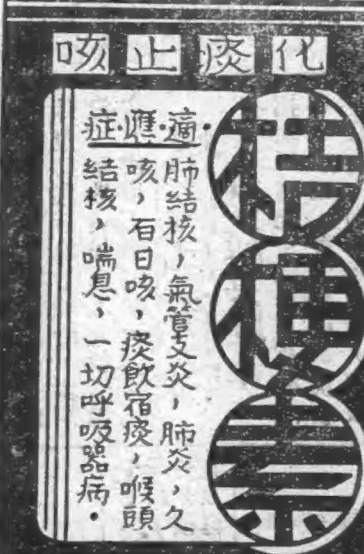 化痰止咳
桔梗素
適·應·症
肺結核，氣管支炎，肺炎，久
咳，百日咳，痰飲宿痰，喉頭
結核，喘息，一切呼吸器病．